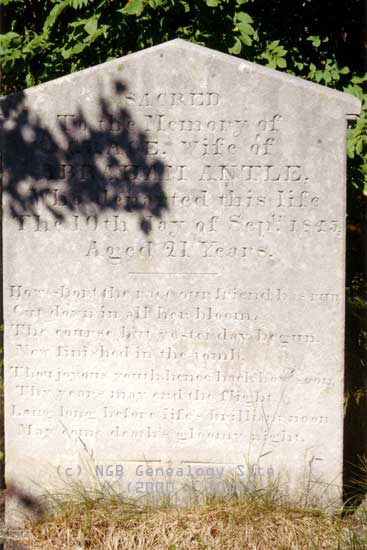 SACRED
To the Memory of
GRACE. Wife of
ABRAHAM ANTLE.
Who departed this life
The 10th day of Sepr. 1845,
Aged 21 Years.
How short the race our friend has run
Cut down in all her bloom.
The course but yesterday begun.
Now finished in the tomb.
Thou joyous youth hence back how soon
Thy years may end the flight
Long long before life's brilliant noon
May come death's gloomy night.
(c) NGB Genealogy Site